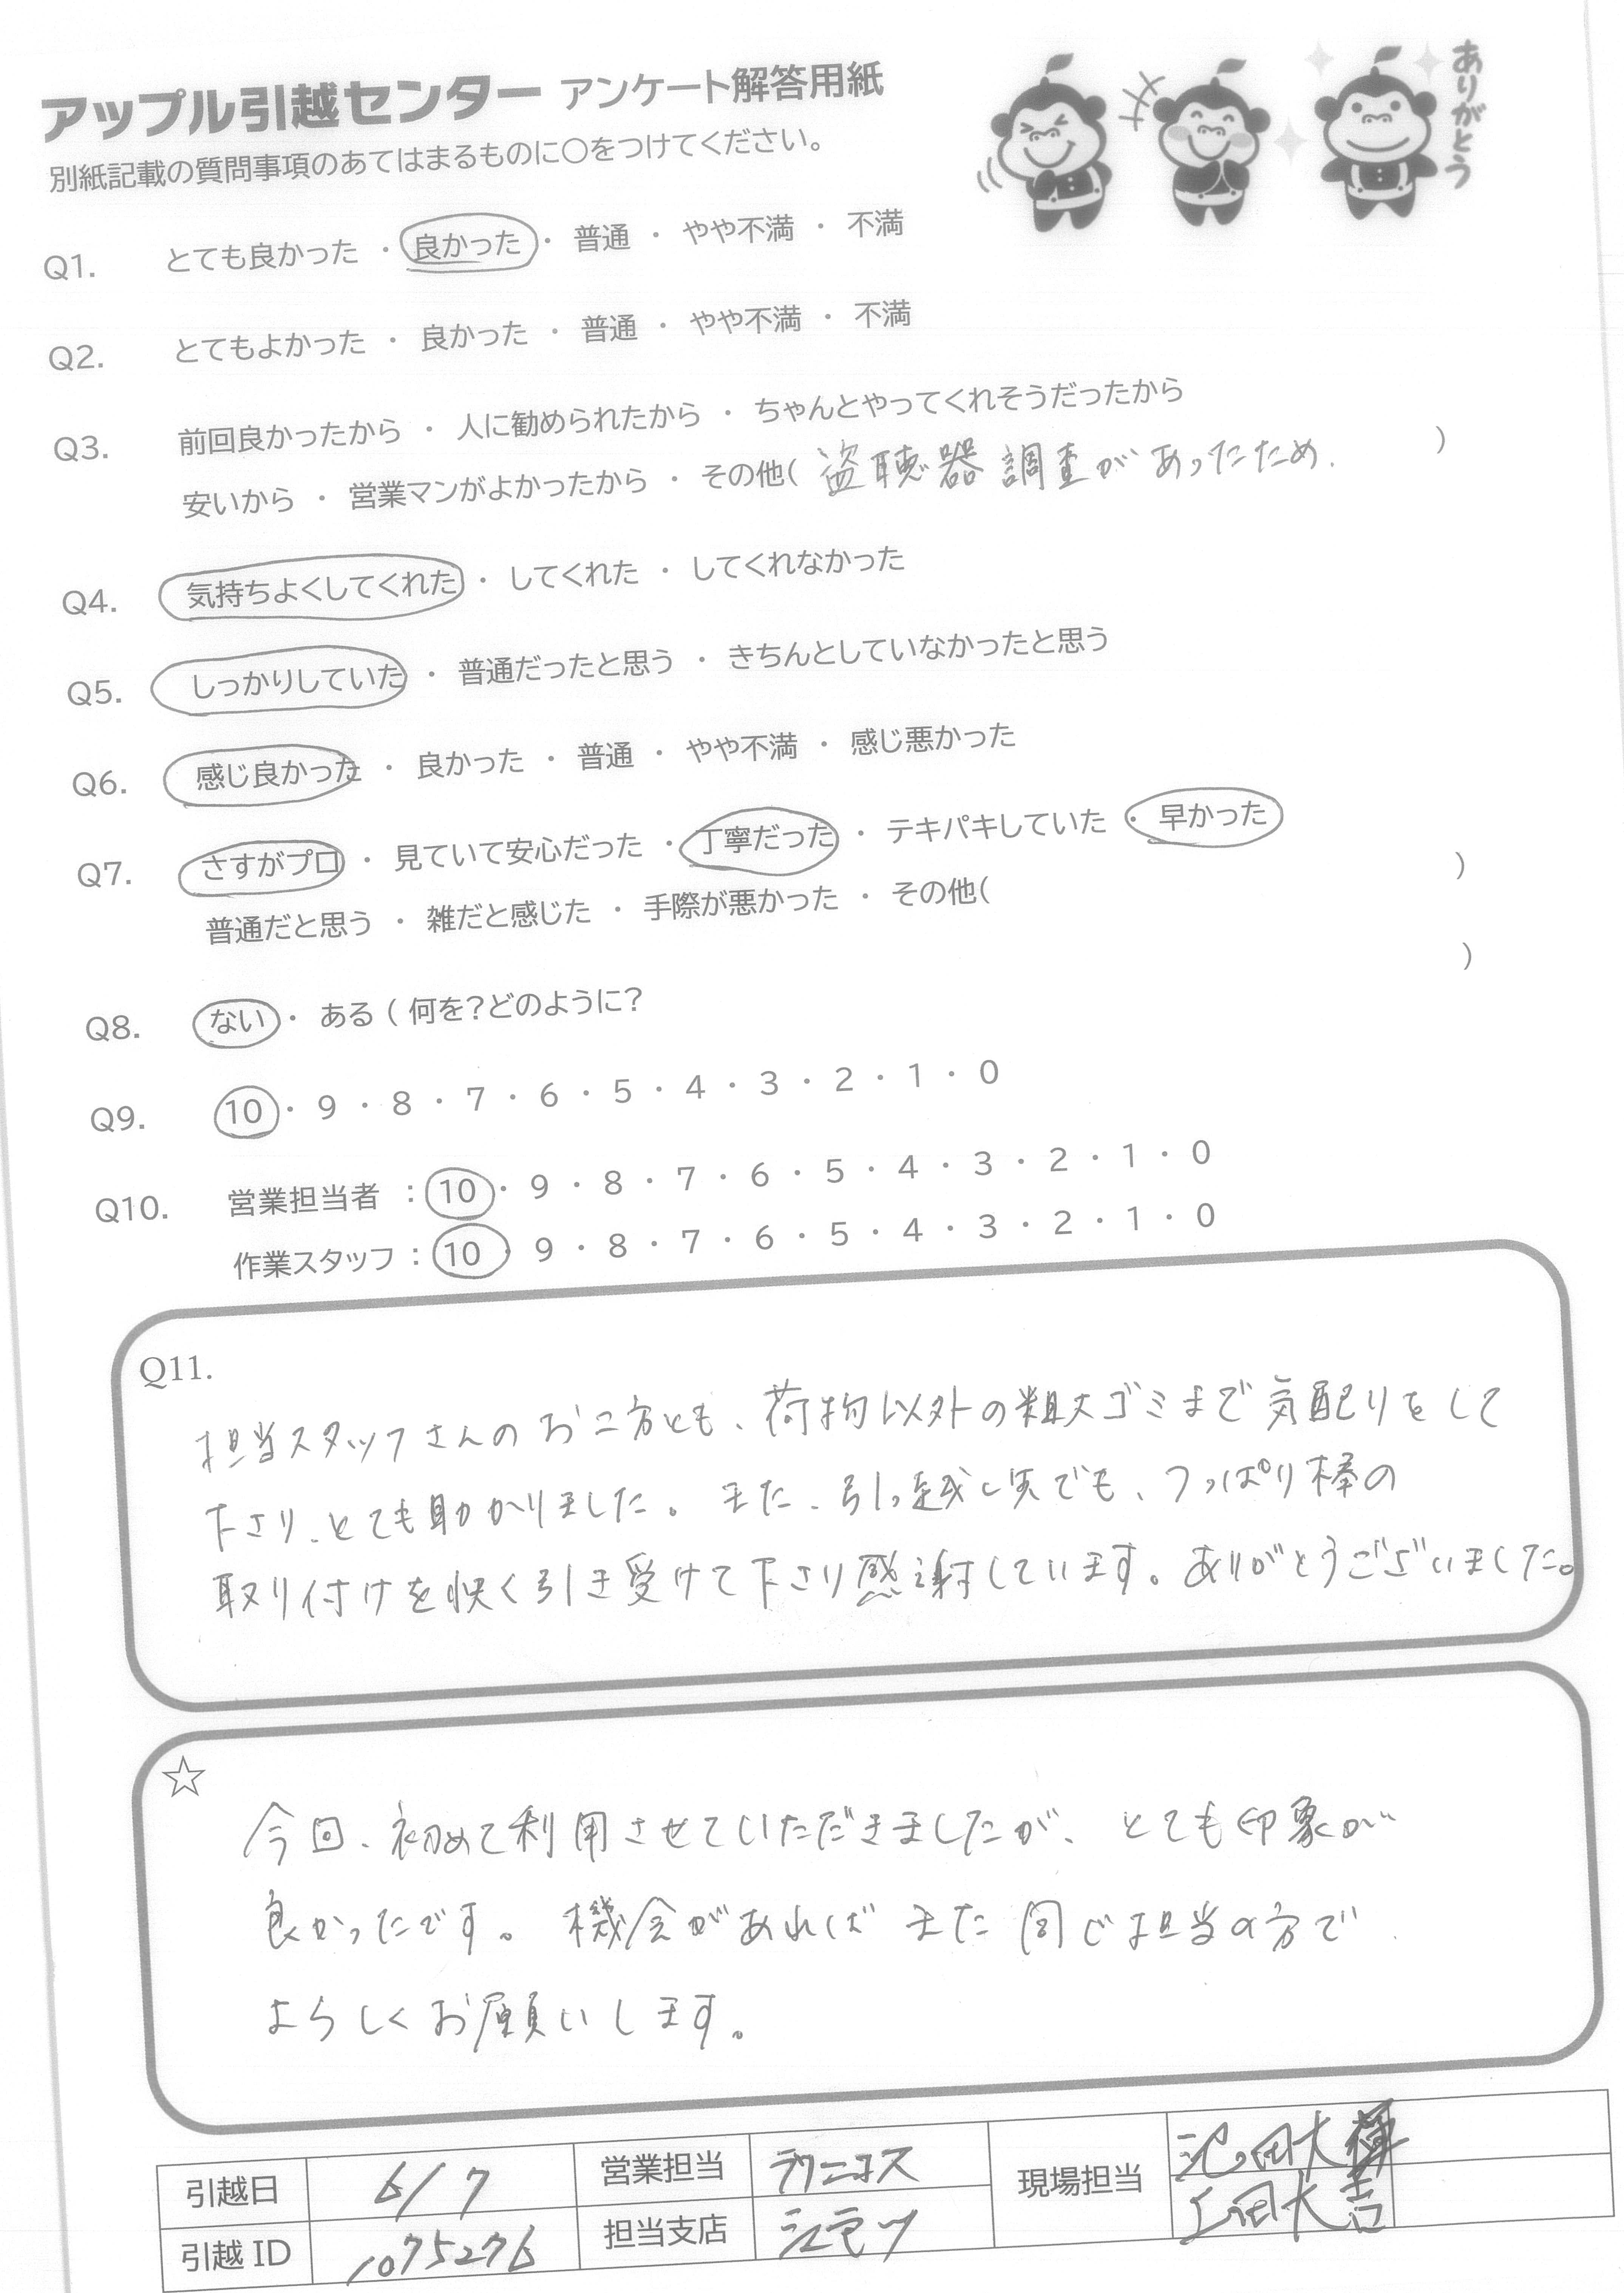 アップル引越センター アンケート解答用紙
ありがとう
別紙記載の質問事項のあてはまるものに〇をつけてください。
Q1. とても良かった ・ 良かった ・ 普通 ・ やや不満 ・ 不満
Q2. とてもよかった ・ 良かった ・ 普通 ・ やや不満 ・ 不満
Q3. 前回良かったから ・ 人に勧められたから ・ ちゃんとやってくれそうだったから
安いから ・ 営業マンがよかったから ・ その他( 盗聴器調査があったため. )
Q4. 気持ちよくしてくれた ・ してくれた ・ してくれなかった
Q5. しっかりしていた ・ 普通だったと思う ・ きちんとしていなかったと思う
Q6. 感じ良かった ・ 良かった ・ 普通 ・ やや不満 ・ 感じ悪かった
Q7. さすがプロ ・ 見ていて安心だった ・ 丁寧だった ・ テキパキしていた ・ 早かった
普通だと思う ・ 雑だと感じた ・ 手際が悪かった ・ その他( )
Q8. ない ・ ある ( 何を?どのように? )
Q9. 10 ・ 9 ・ 8 ・ 7 ・ 6 ・ 5 ・ 4 ・ 3 ・ 2 ・ 1 ・ 0
Q10. 営業担当者 : 10 ・ 9 ・ 8 ・ 7 ・ 6 ・ 5 ・ 4 ・ 3 ・ 2 ・ 1 ・ 0
作業スタッフ : 10 ・ 9 ・ 8 ・ 7 ・ 6 ・ 5 ・ 4 ・ 3 ・ 2 ・ 1 ・ 0
Q11.
担当スタッフさんのお二方とも、荷物以外の粗大ゴミまで気配りをして
下さり、とても助かりました。また、引っ越し先でも、つっぱり棒の
取り付けを快く引き受けて下さり感謝しています。ありがとうございました。
☆
今回、初めて利用させていただきましたが、とても印象が
良かったです。機会があればまた同じ担当の方で
よろしくお願いします。
引越日 6/7 営業担当 現場担当 池田大輝
引越ID 1075276 担当支店 上田大吉